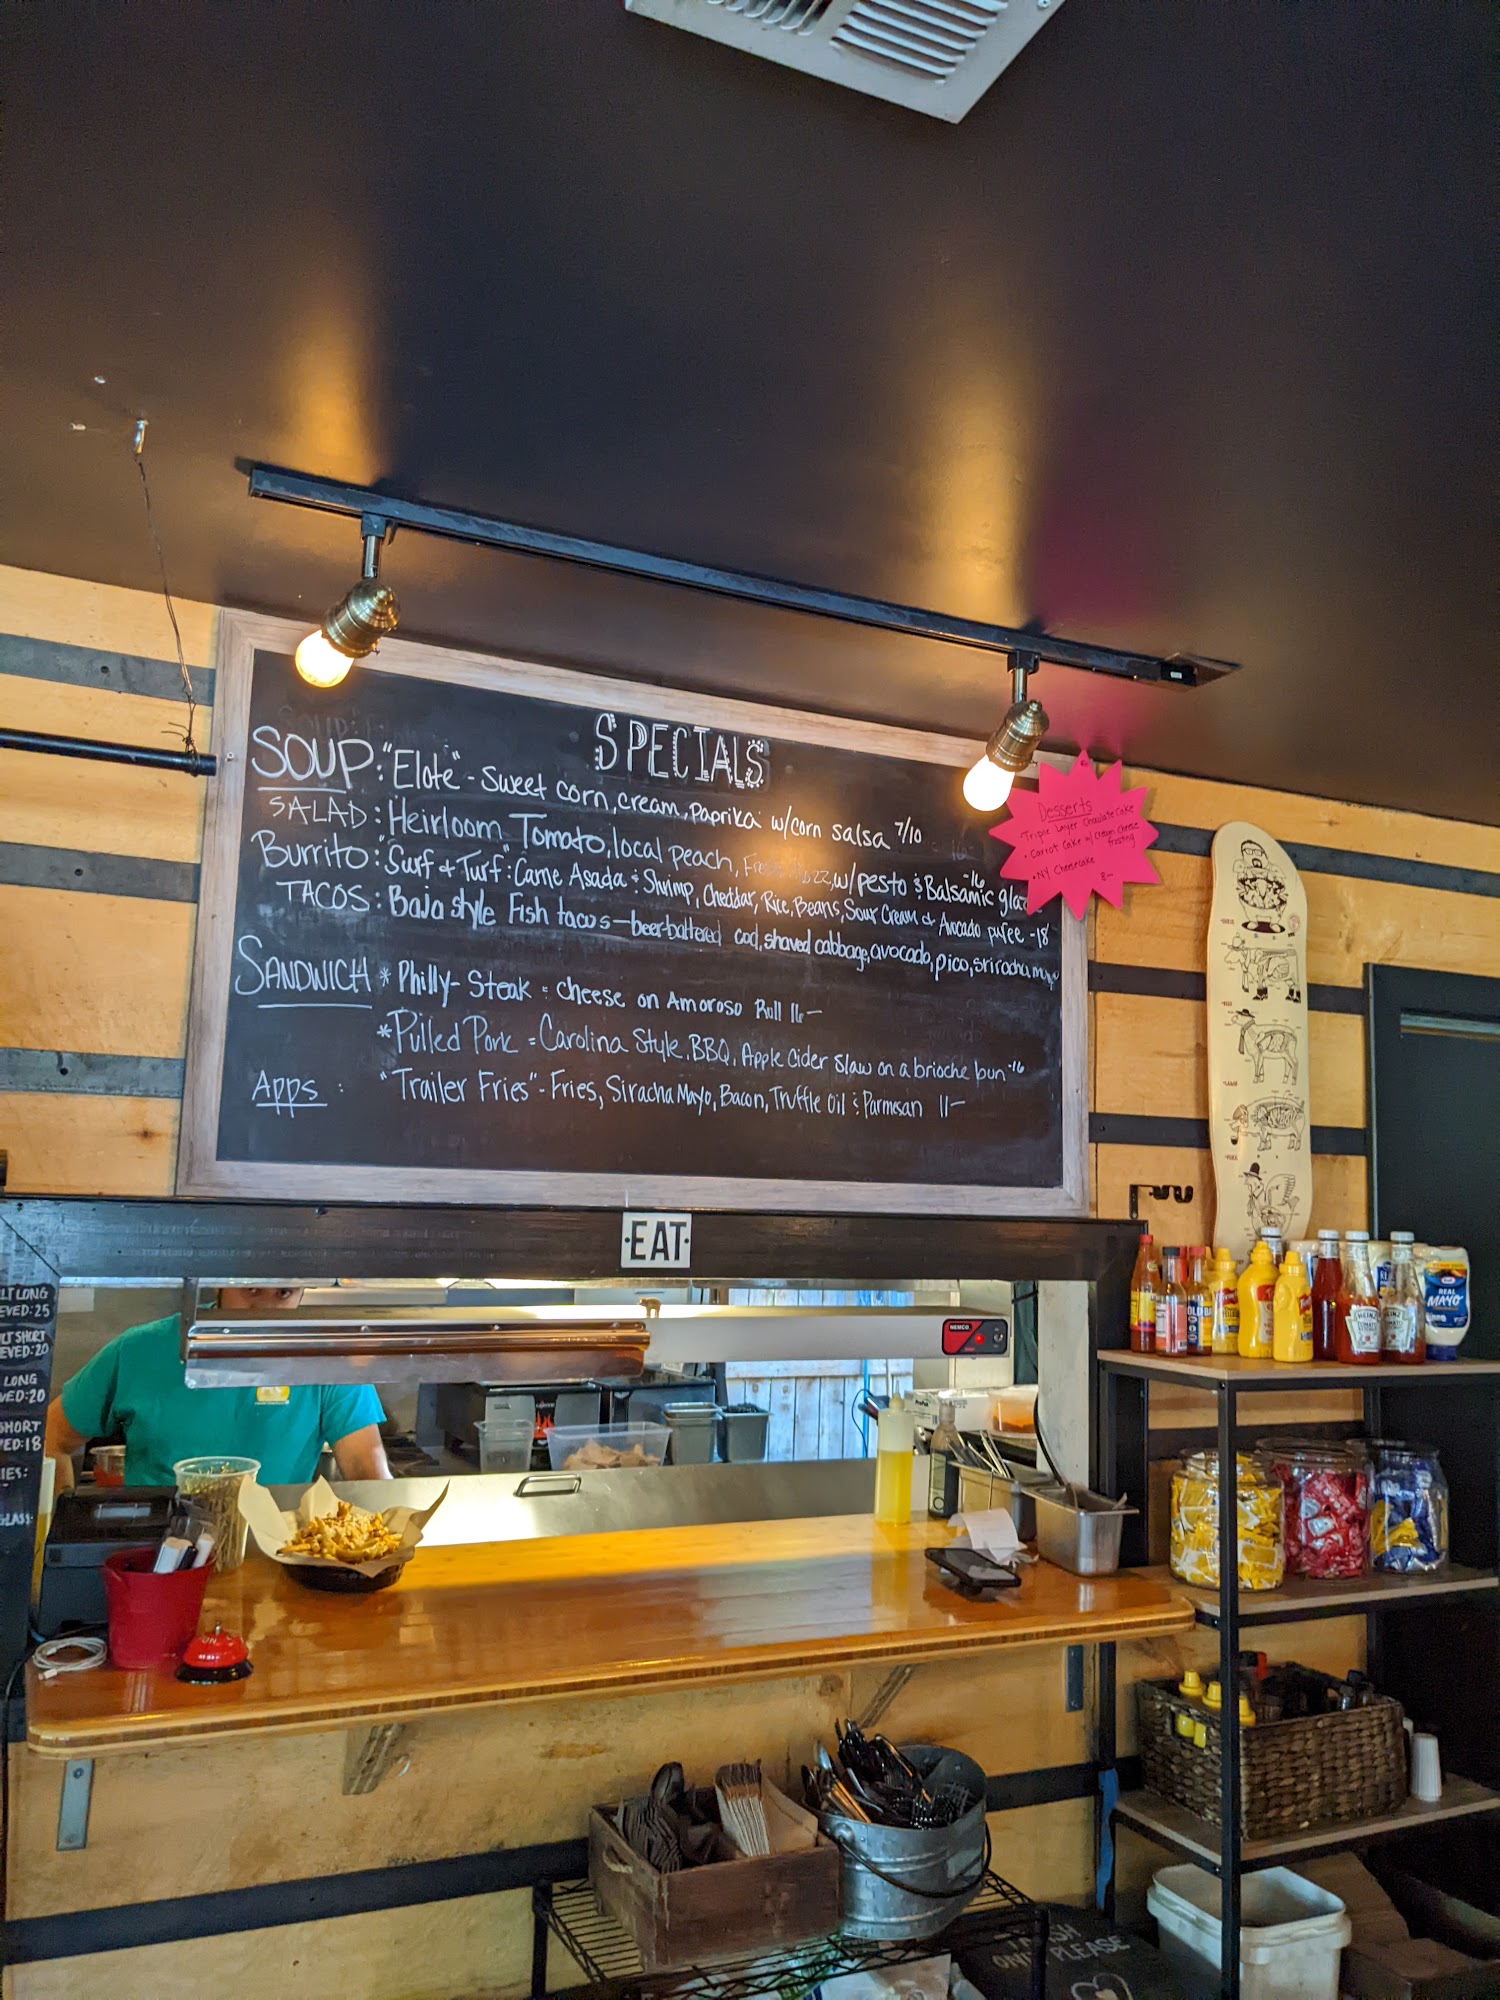 SPECIALS
SOUP: "Elote" - Sweet corn, cream, paprika w/corn salsa 7/10
SALAD: Heirloom Tomato, local peach, w/pesto & Balsamic -16
Burrito: "Surf & Turf": Carne Asada & Shrimp, Cheddar, Rice, Beans, Sour Cream & Avocado puree -18
TACOS: Baja style Fish tacos - beer-battered cod, shaved cabbage, avocado, pico, sriracha mayo
SANDWICH * Philly-Steak & cheese on Amoroso Roll 16-
*Pulled Pork - Carolina Style, BBQ, Apple Cider Slaw on a brioche bun -16
Apps: "Trailer Fries" - Fries, Siracha Mayo, Bacon, Truffle Oil & Parmesan 11-
Desserts
-Triple Layer Chocolate Cake
• Carrot Cake w/ Cream Cheese
frosting
• NY Cheesecake
8-
·EAT·
NEMCO
LONG
:25
SHORT
:20
LONG
:20
SHORT
:18
REAL
MAYO
HEINZ
PLEASE